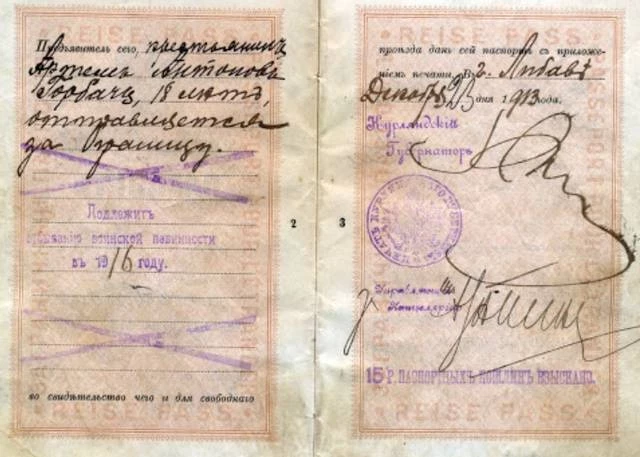 REISE PASS
Предъявитель сего, крестьянинъ
Артемъ Антоновъ
Горбачъ, 18 лѣтъ,
отправляется
за границу.
Подлежитъ
отбыванію воинской повинности
въ 1916 году.
2
во свидѣтельство чего и для свободнаго
REISE PASS
REISE PASS
проѣзда данъ сей паспортъ съ приложе-
ніемъ печати. Въ г. Либавѣ
Декабр 23 дня 1913 года.
Курляндскій
Губернаторъ
3
Управляющій
Канцеляріею
15 Р. ПАСПОРТНЫХЪ ПОШЛИНЪ ВЗЫСКАНЫ.
REISE PASS